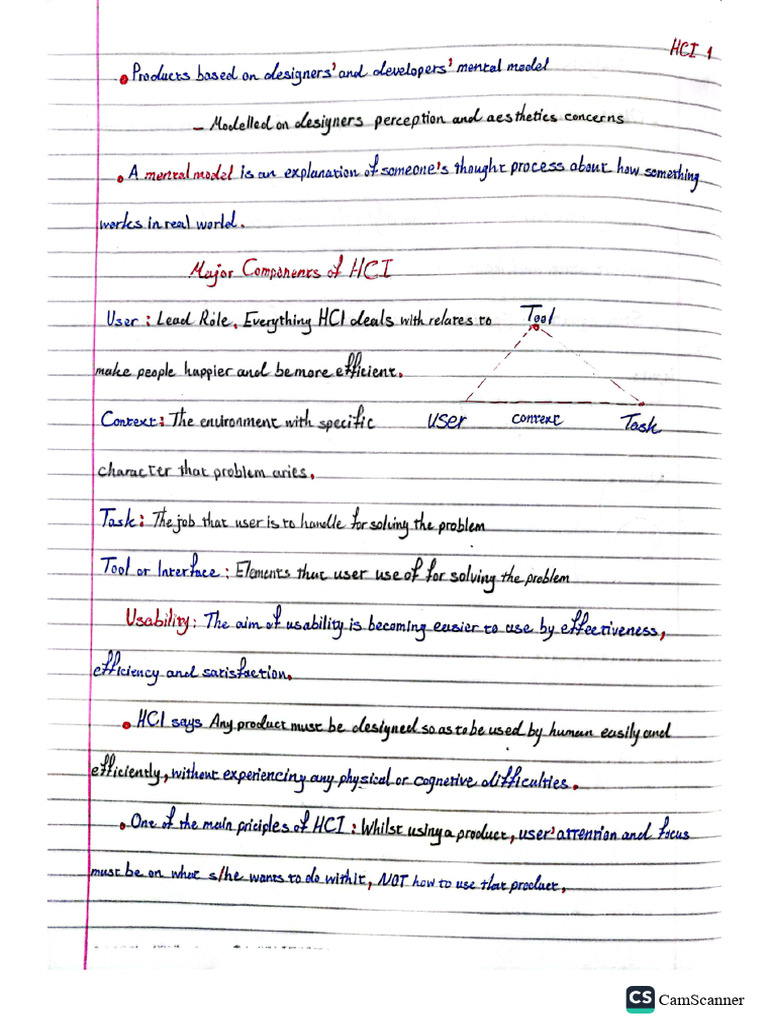 HCI 1
• Products based on designers' and developers' mental model
– Modelled on designers perception and aesthetics concerns
• A mental model is an explanation of someone's thought process about how something
works in real world.
Major Components of HCI
User : Lead Role. Everything HCI deals with relates to
Tool
make people happier and be more efficient.
Context : The environment with specific
user context Task
character that problem aries.
Task : The job that user is to handle for solving the problem
Tool or Interface : Elements that user use of for solving the problem
Usability : The aim of usability is becoming easier to use by effectiveness,
efficiency and satisfaction.
• HCI says Any product must be designed so as to be used by human easily and
efficiently, without experiencing any physical or cognetive difficulties.
• One of the main priciples of HCI : Whilst using a product, user' attention and focus
must be on what s/he wants to do with it, NOT how to use that product.
CS CamScanner